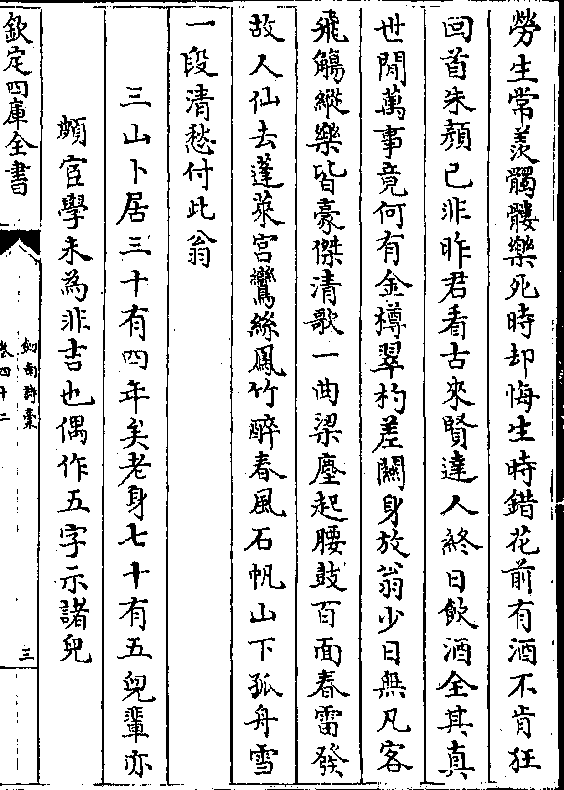 勞生常羨髑髏樂死時却悔生時錯花前有酒不肯狂
回首朱顔已非昨君看古來賢達人終日飲酒全其真
世間萬事竟何有金樽翠杓差關身放翁少日無凡客
飛觴縱樂皆豪傑清歌一曲梁塵起腰鼓百面春雷發
故人仙去蓬萊宮鸞絲鳳竹醉春風石帆山下孤舟雪
一段清愁付此翁
三山卜居三十有四年矣老身七十有五兒輩亦
頗宦學未為非吉也偶作五字示諸兒
欽定四庫全書
劍南詩稾
卷四十二
三